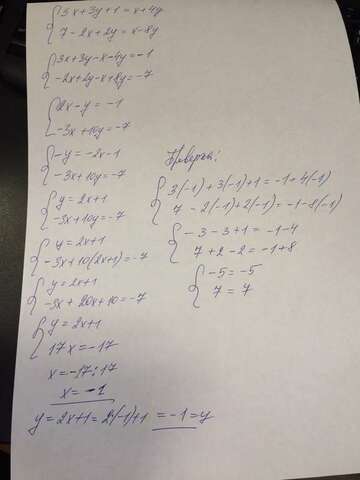 3x+3y+1=x+4y
7-2x+2y=x-8y
3x+3y-x-4y=-1
-2x+2y-x+8y=-7
2x-y=-1
-3x+10y=-7
-y=-2x-1
-3x+10y=-7
y=2x+1
-3x+10y=-7
y=2x+1
-3x+10(2x+1)=-7
y=2x+1
-3x+20x+10=-7
y=2x+1
17x=-17
x=-17:17
x=-1
y=2x+1=2(-1)+1=-1=y
Проверка:
3(-1)+3(-1)+1=-1+4(-1)
7-2(-1)+2(-1)=-1-8(-1)
-3-3+1=-1-4
7+2-2=-1+8
-5=-5
7=7